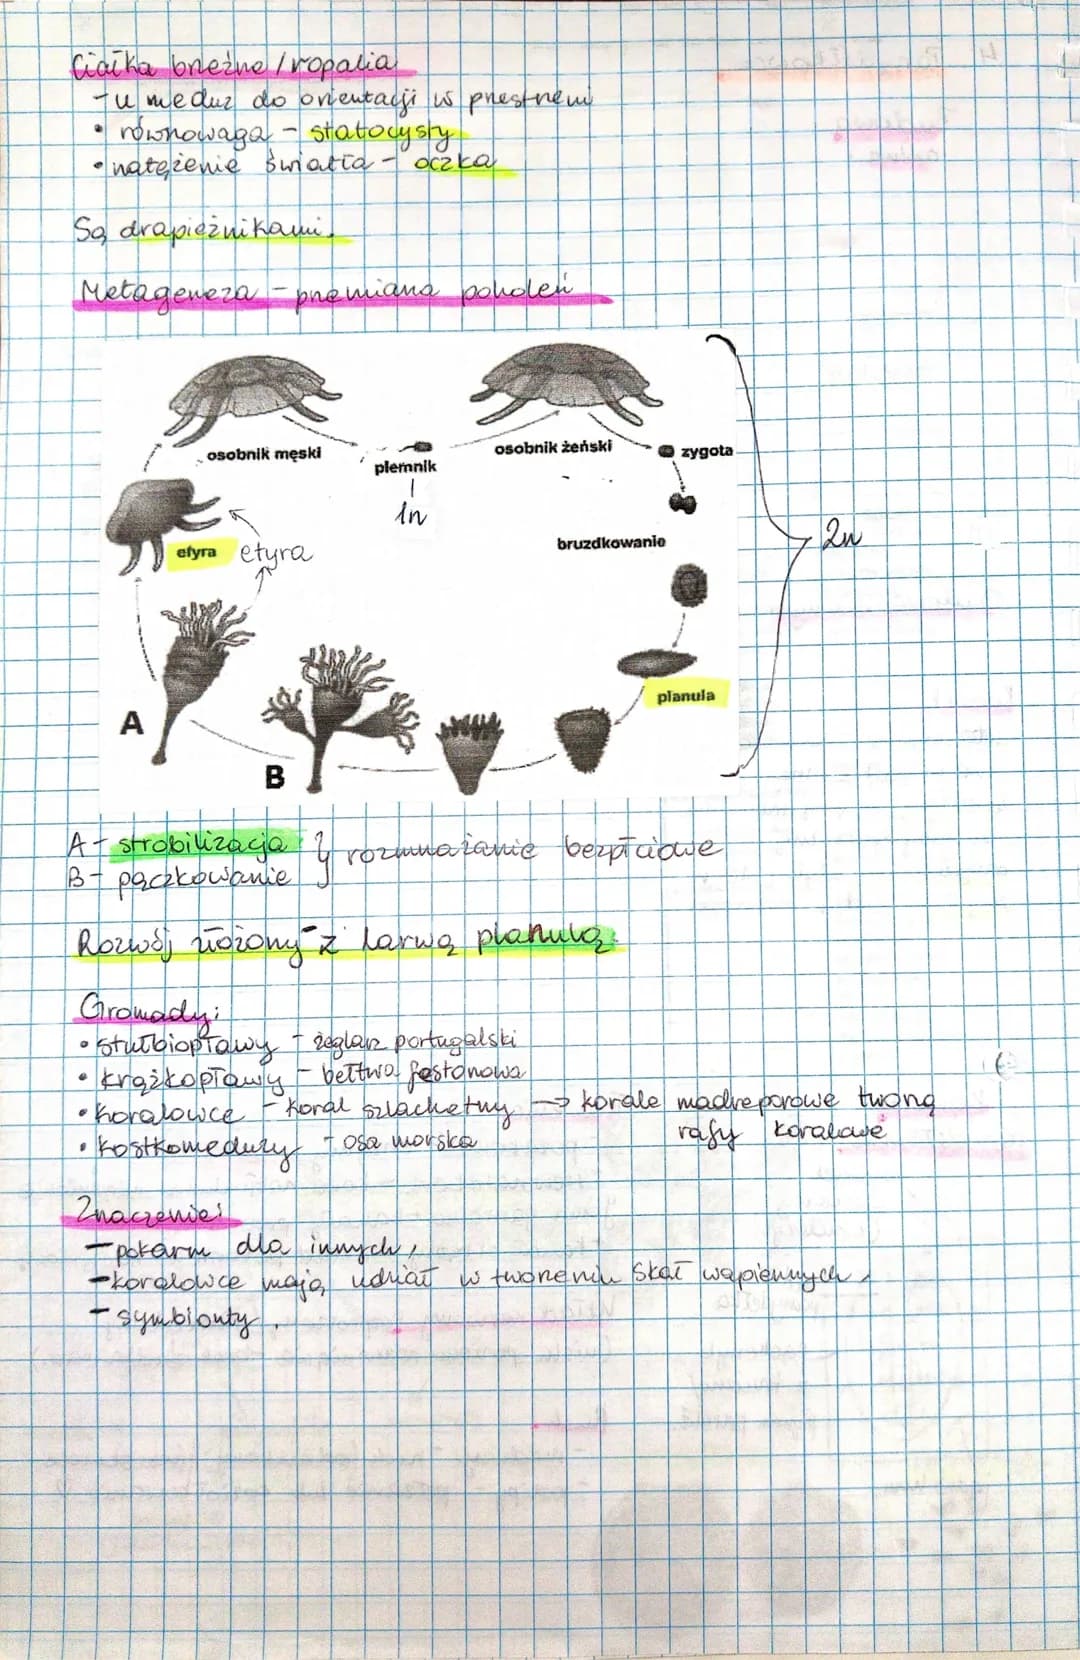 Ciałka brzeżne / ropalia
- u meduz do orientacji w przestrzeni
• równowaga - statocysty
• natężenie światła - oczka
Są drapieżnikami.
Metageneza - przemiana pokoleń
osobnik męski
plemnik
1n
osobnik żeński
zygota
bruzdkowanie
2n
efyra
etyra
planula
A
B
A - strobilizacja } rozmnażanie bezpłciowe
B - pączkowanie
Rozwój złożony z larwą planulą
Gromady:
• stułbiopławy - żeglarz portugalski
• krążkopławy - bełtwa festonowa
• koralowce - koral szlachetny → korale madreporowe tworzą
rafy koralowe
• kostkomeduzy - osa morska
Znaczenie:
- pokarm dla innych,
- koralowce mają udział w tworzeniu skał wapiennych,
- symbionty.